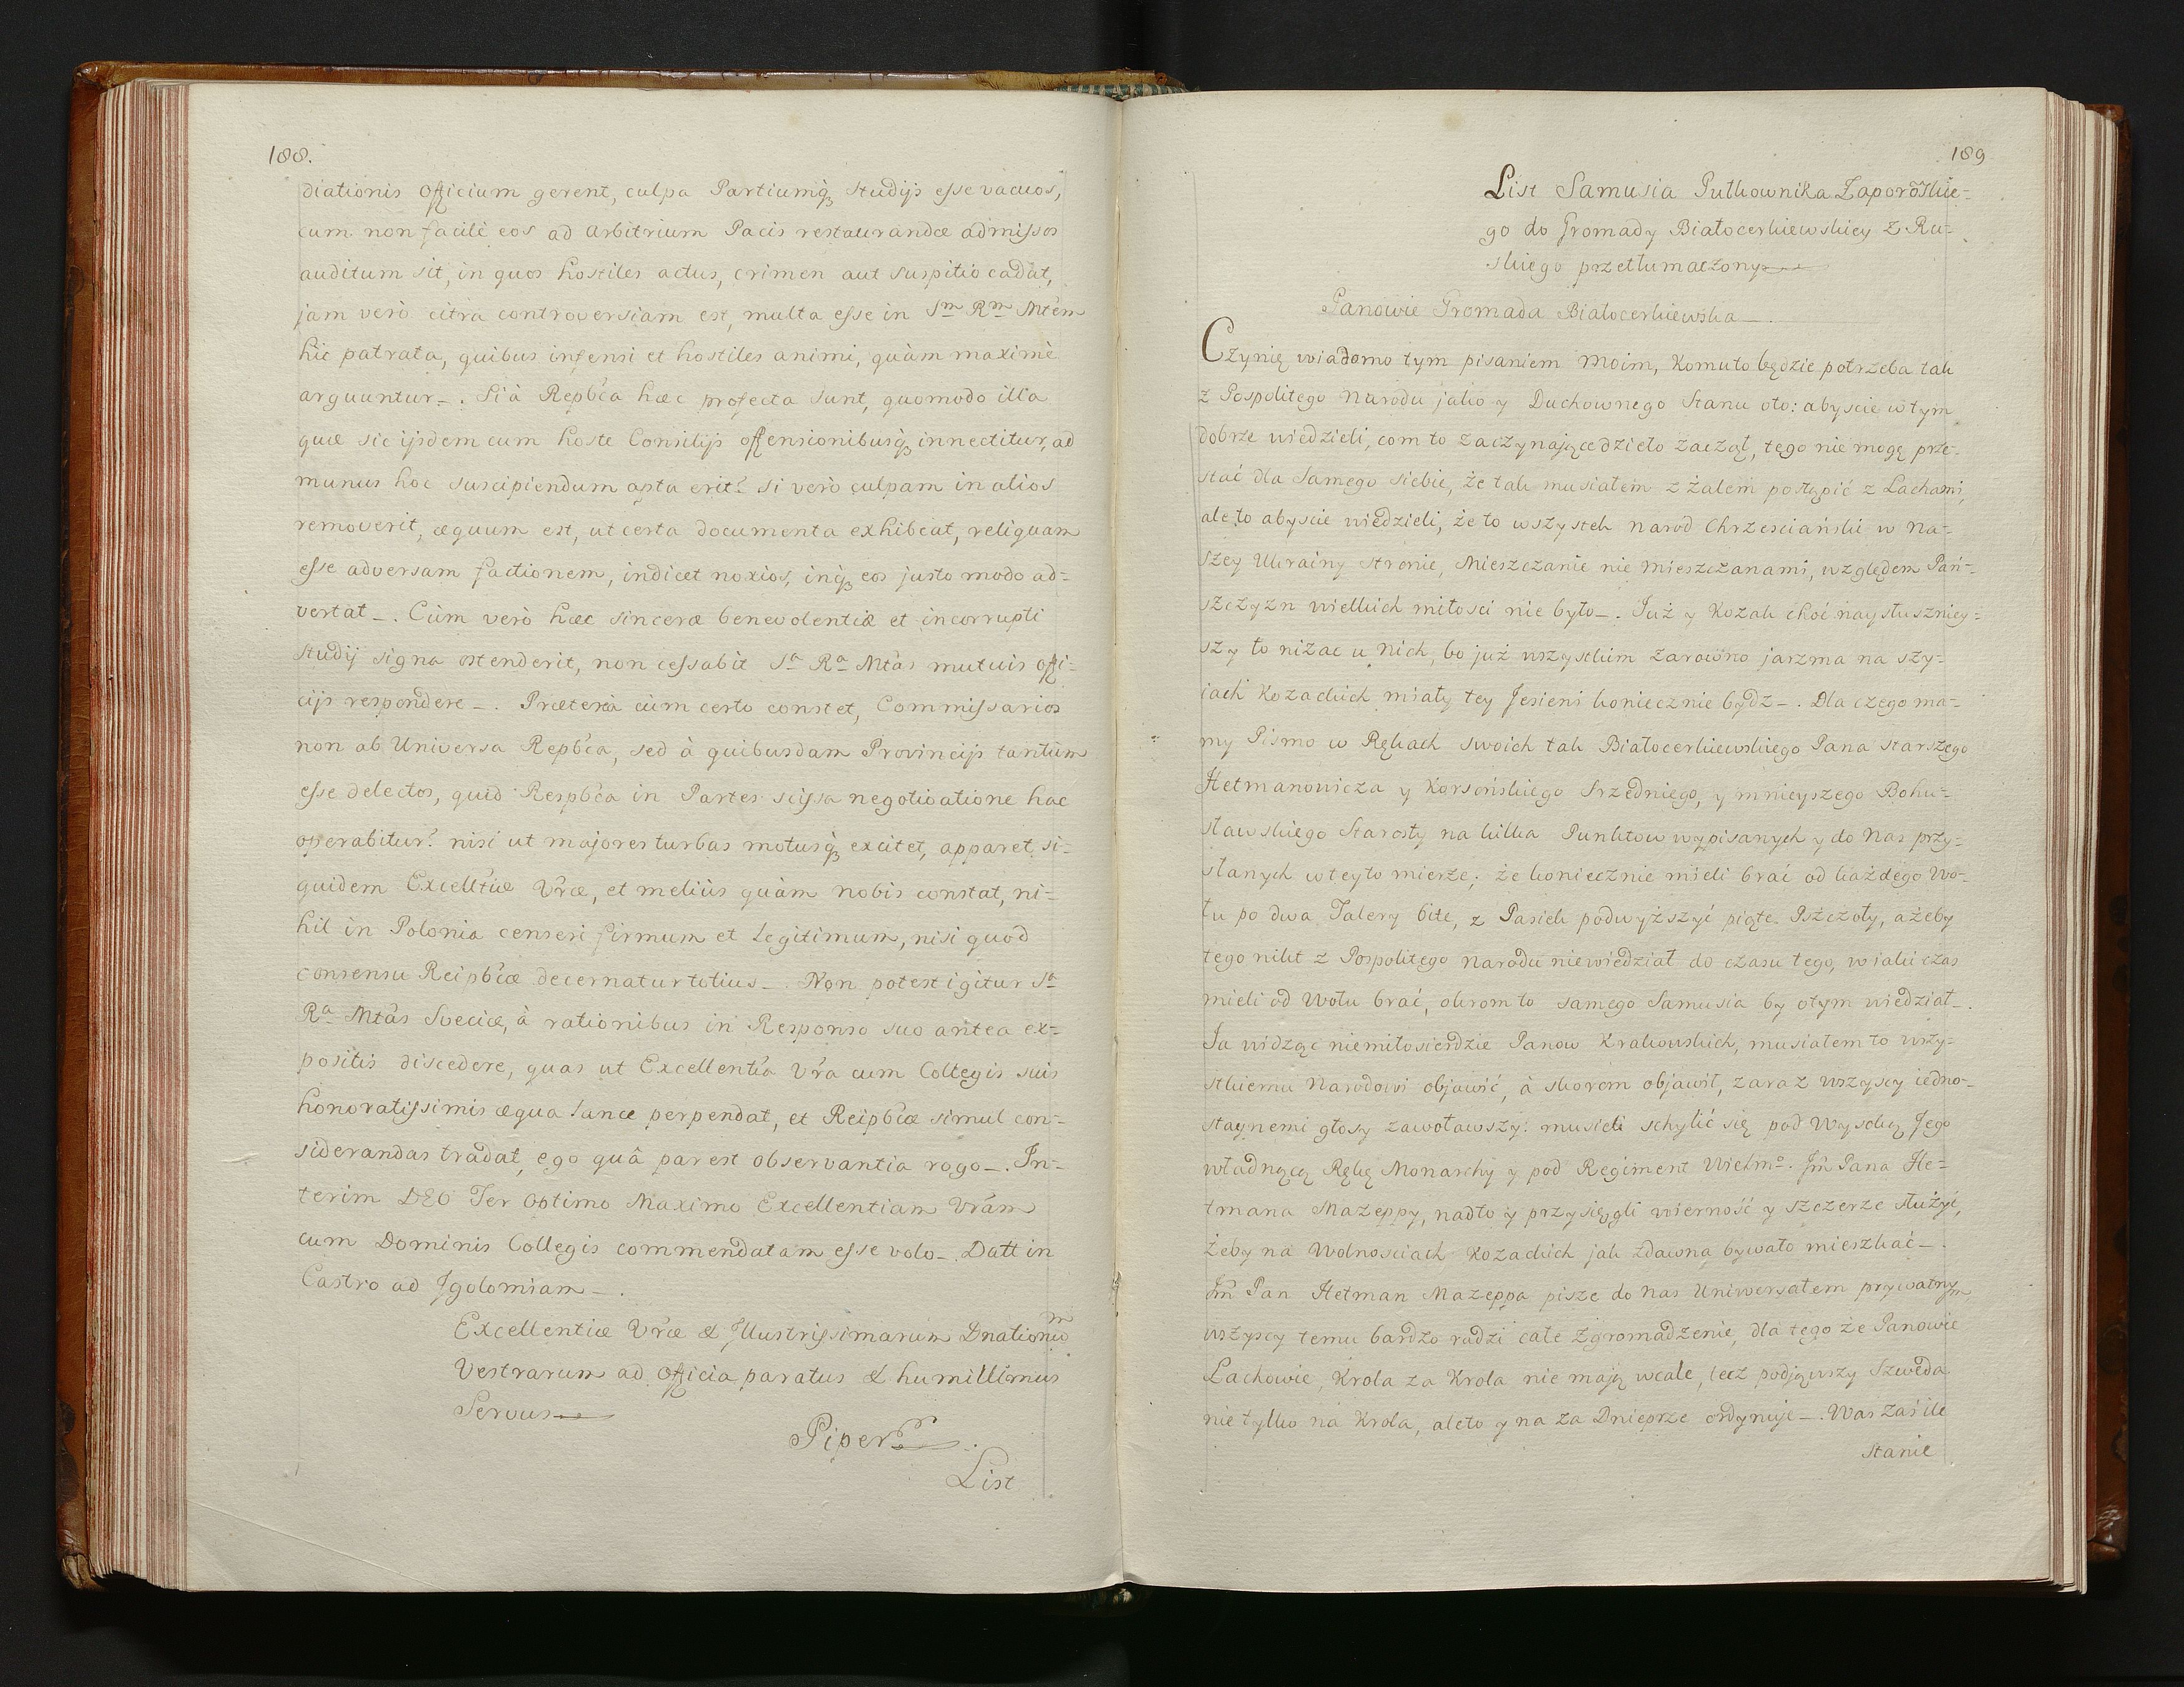 188.
diationis officium gerent, culpa Partiumq3 studijs esse vacuos,
cum non facilè eos ad arbitrium Pacis restaurandæ admissos
auditum sit, in quos hostiles actus, crimen aut suspitio cadat,
jam verò citrà controversiam est, multa esse in Sm Rm Mtem
hic patrata, quibus infensi et hostiles animi, quàm maximè
arguuntur_. Si à Repb'ca hæc profecta sunt, quomodo illa
quæ sic ijsdem cum hoste Consilijs offensionibusq3 innectitur, ad
munus hoc suscipiendum apta erit? si verò culpam in alios
removerit, æquum est, ut certa documenta exhibeat, reliquam
esse adversam factionem, indicet noxios, inq3 eos justo modo ad=
vertat_. Cùm verò hæc sinceræ benevolentiæ et incorrupti
studij signa ostenderit, non cessabit Sa Ra Mtas mutuis offi=
cijs respondere_. Prætereà cùm certo constet, Commissarios
non ab Universa Repb'ca, sed à quibusdam Provincijs tantùm
esse delectos, quid Respb'ca in Partes scissa negotiatione hac
operabitur? nisi ut majores turbas motusq3 excitet, apparet si=
quidem Excelltiæ Vræ, et meliùs quàm nobis constat, ni=
hil in Polonia censeri firmum et legitimum, nisi quod
consensu Reipb'cæ decernatur totius_. Non potest igitur Sa
Ra Mtas Sveciæ, à rationibus in Responso suo antea ex=
positis discedere, quas ut Excellentia Vra cum Collegis suis
honoratissimis æqua lance perpendat, et Reipb'cæ simul con=
siderandas tradat, ego quâ par est observantia rogo_. In=
terim DEO Ter Optimo Maximo Excellentiam Vram
cum Dominis Collegis commendatam esse volo_. Datt in
Castro ad Igolomiam_.
Excellentiæ Vræ & Illustrissimarum Dnationum
Vestrarum ad officia paratus & humillimus
Servus
Piper
List
189
List Samusia Pułkownika Zaporoskie=
go do Gromady Białocerkiewskiey z Ru=
skiego przetłumaczony
Panowie Gromada Białocerkiewska_.
Czynię wiadomo tym pisaniem moim, komuto będzie potrzeba tak
z Pospolitego Narodu jako y Duchownego Stanu oto: abyscie w tym
dobrze wiedzieli, com to zaczynające dzieło zaczął, tego nie mogę prze=
stać dla samego siebie, że tak musiałem z żalem postąpić z Lachami,
ale to abyscie wiedzieli, że to wszystek narod Chrzesciański w na=
szey Ukrainy stronie, Mieszczanie nie mieszczanami, względem Pań=
szczyzn wielkich miłosci nie było_. Już y Kozak choć naysłuszniey=
szy to nizac u nich, bo już wszystkim zarowno jarzma na szy=
iach Kozackich miały tey Jesieni koniecznie bydz_. Dla czego ma=
my Pismo w Rękach swoich tak Białocerkiewskiego Pana starszego
Hetmanowicza y Korsońskiego Srzedniego, y mnieyszego Bohu=
sławskiego Starosty na kilka Punktow wypisanych y do nas przy=
słanych w teyto mierze; że koniecznie mieli brać od każdego Wo=
łu po dwa Talery bite, z Pasiek podwyższyć piąte Pszczoły, ażeby
tego nikt z Pospolitego narodu niewiedział do czasu tego, w iaki czas
mieli od Wołu brać, okrom to samego Samusia by otym wiedział_.
Ja widząc niemiłosierdzie Panow Krakowskich, musiałem to wszy=
stkiemu Narodowi objawić, à skorom objawił, zaraz wszyscy iedno=
staynemi głosy zawoławszy: musieli schylić się pod Wysoką Jego
władnącą Rękę Monarchy y pod Regiment Wielmo. Jm Pana He=
tmana Mazeppy, nadto y przysięgli wierność y szczerze służyć,
żeby na Wolnosciach Kozackich jak zdawna bywało mieszkać_.
Jm Pan Hetman Mazeppa pisze do nas Uniwersałem prywatnym
wszyscy temu bardzo radzi całe zgromadzenie, dla tego że Panowie
Lachowie, Krola za Krola nie mają wcale, lecz podjąwszy Szweda
nie tylko na Krola, aleto y na za Dnieprze ordynuje_. Was zaś ile
stanie